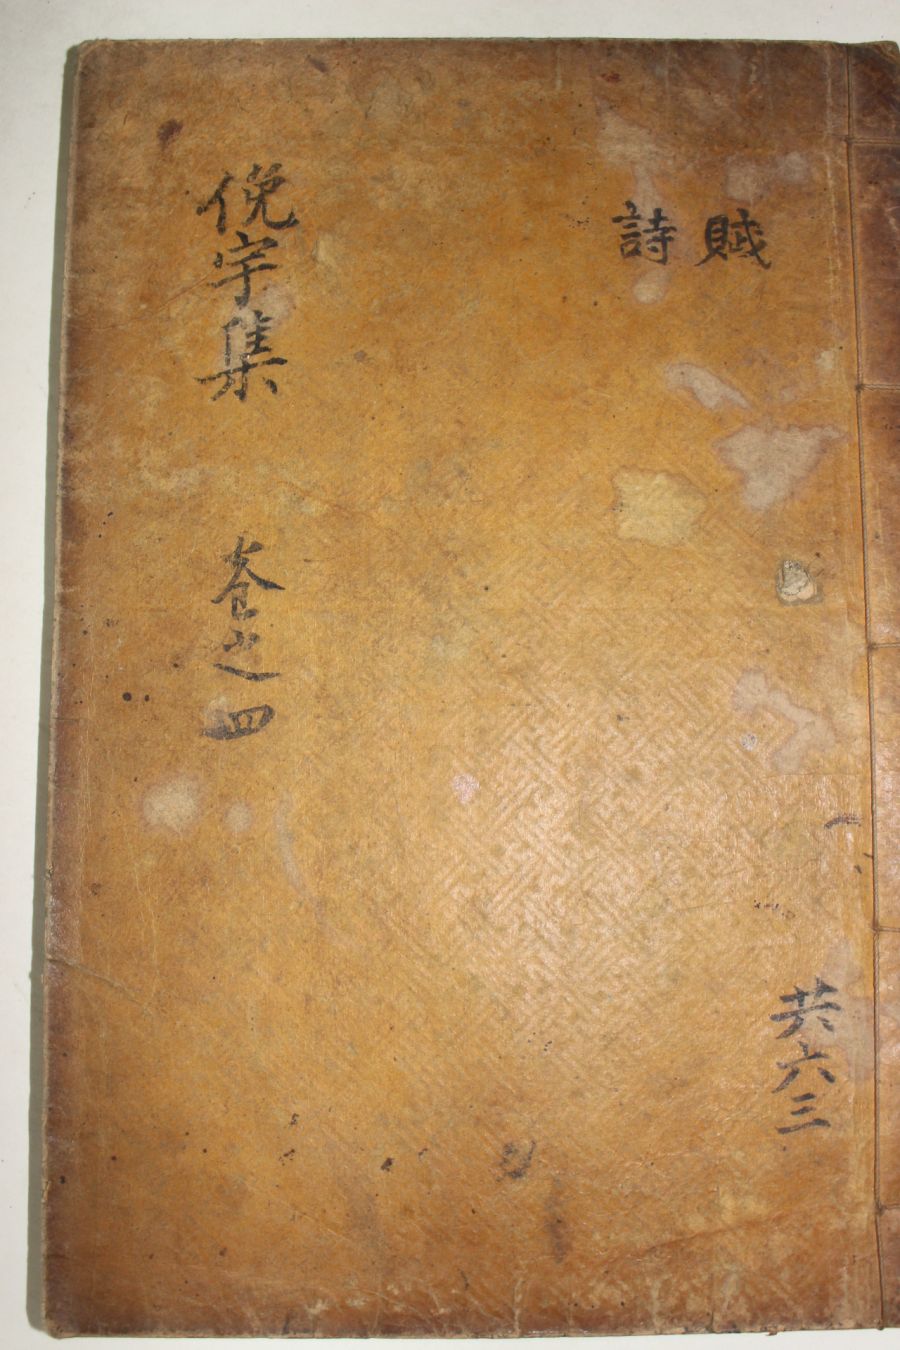 俛宇集 卷之四
賦
詩
共六三